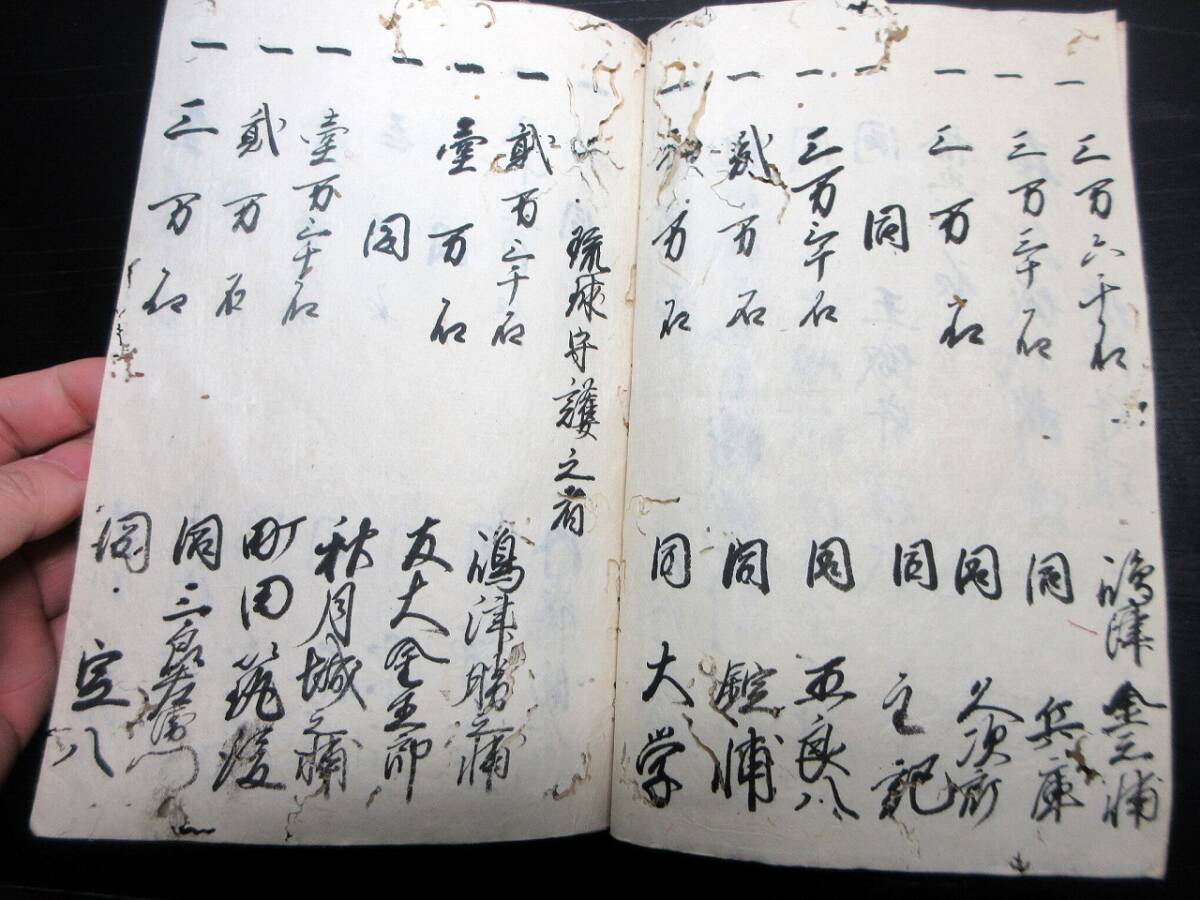 一 三万六千石 嶋津 金之浦
一 三万三千石 同 兵庫
一 三万石 同 久次郎
一 同 同 主記
一 三万三千石 同 五良八
一 弐万石 同 錠浦
一 万石 同 大学
琉球守護之者
一 弐万三千石 嶋津勝之浦
一 壱万石 友大金五郎
一 同 秋月城之浦
一 壱万三千石 町田筑後
一 弐万石 同 三郎右衛門
一 三万石 同 定八